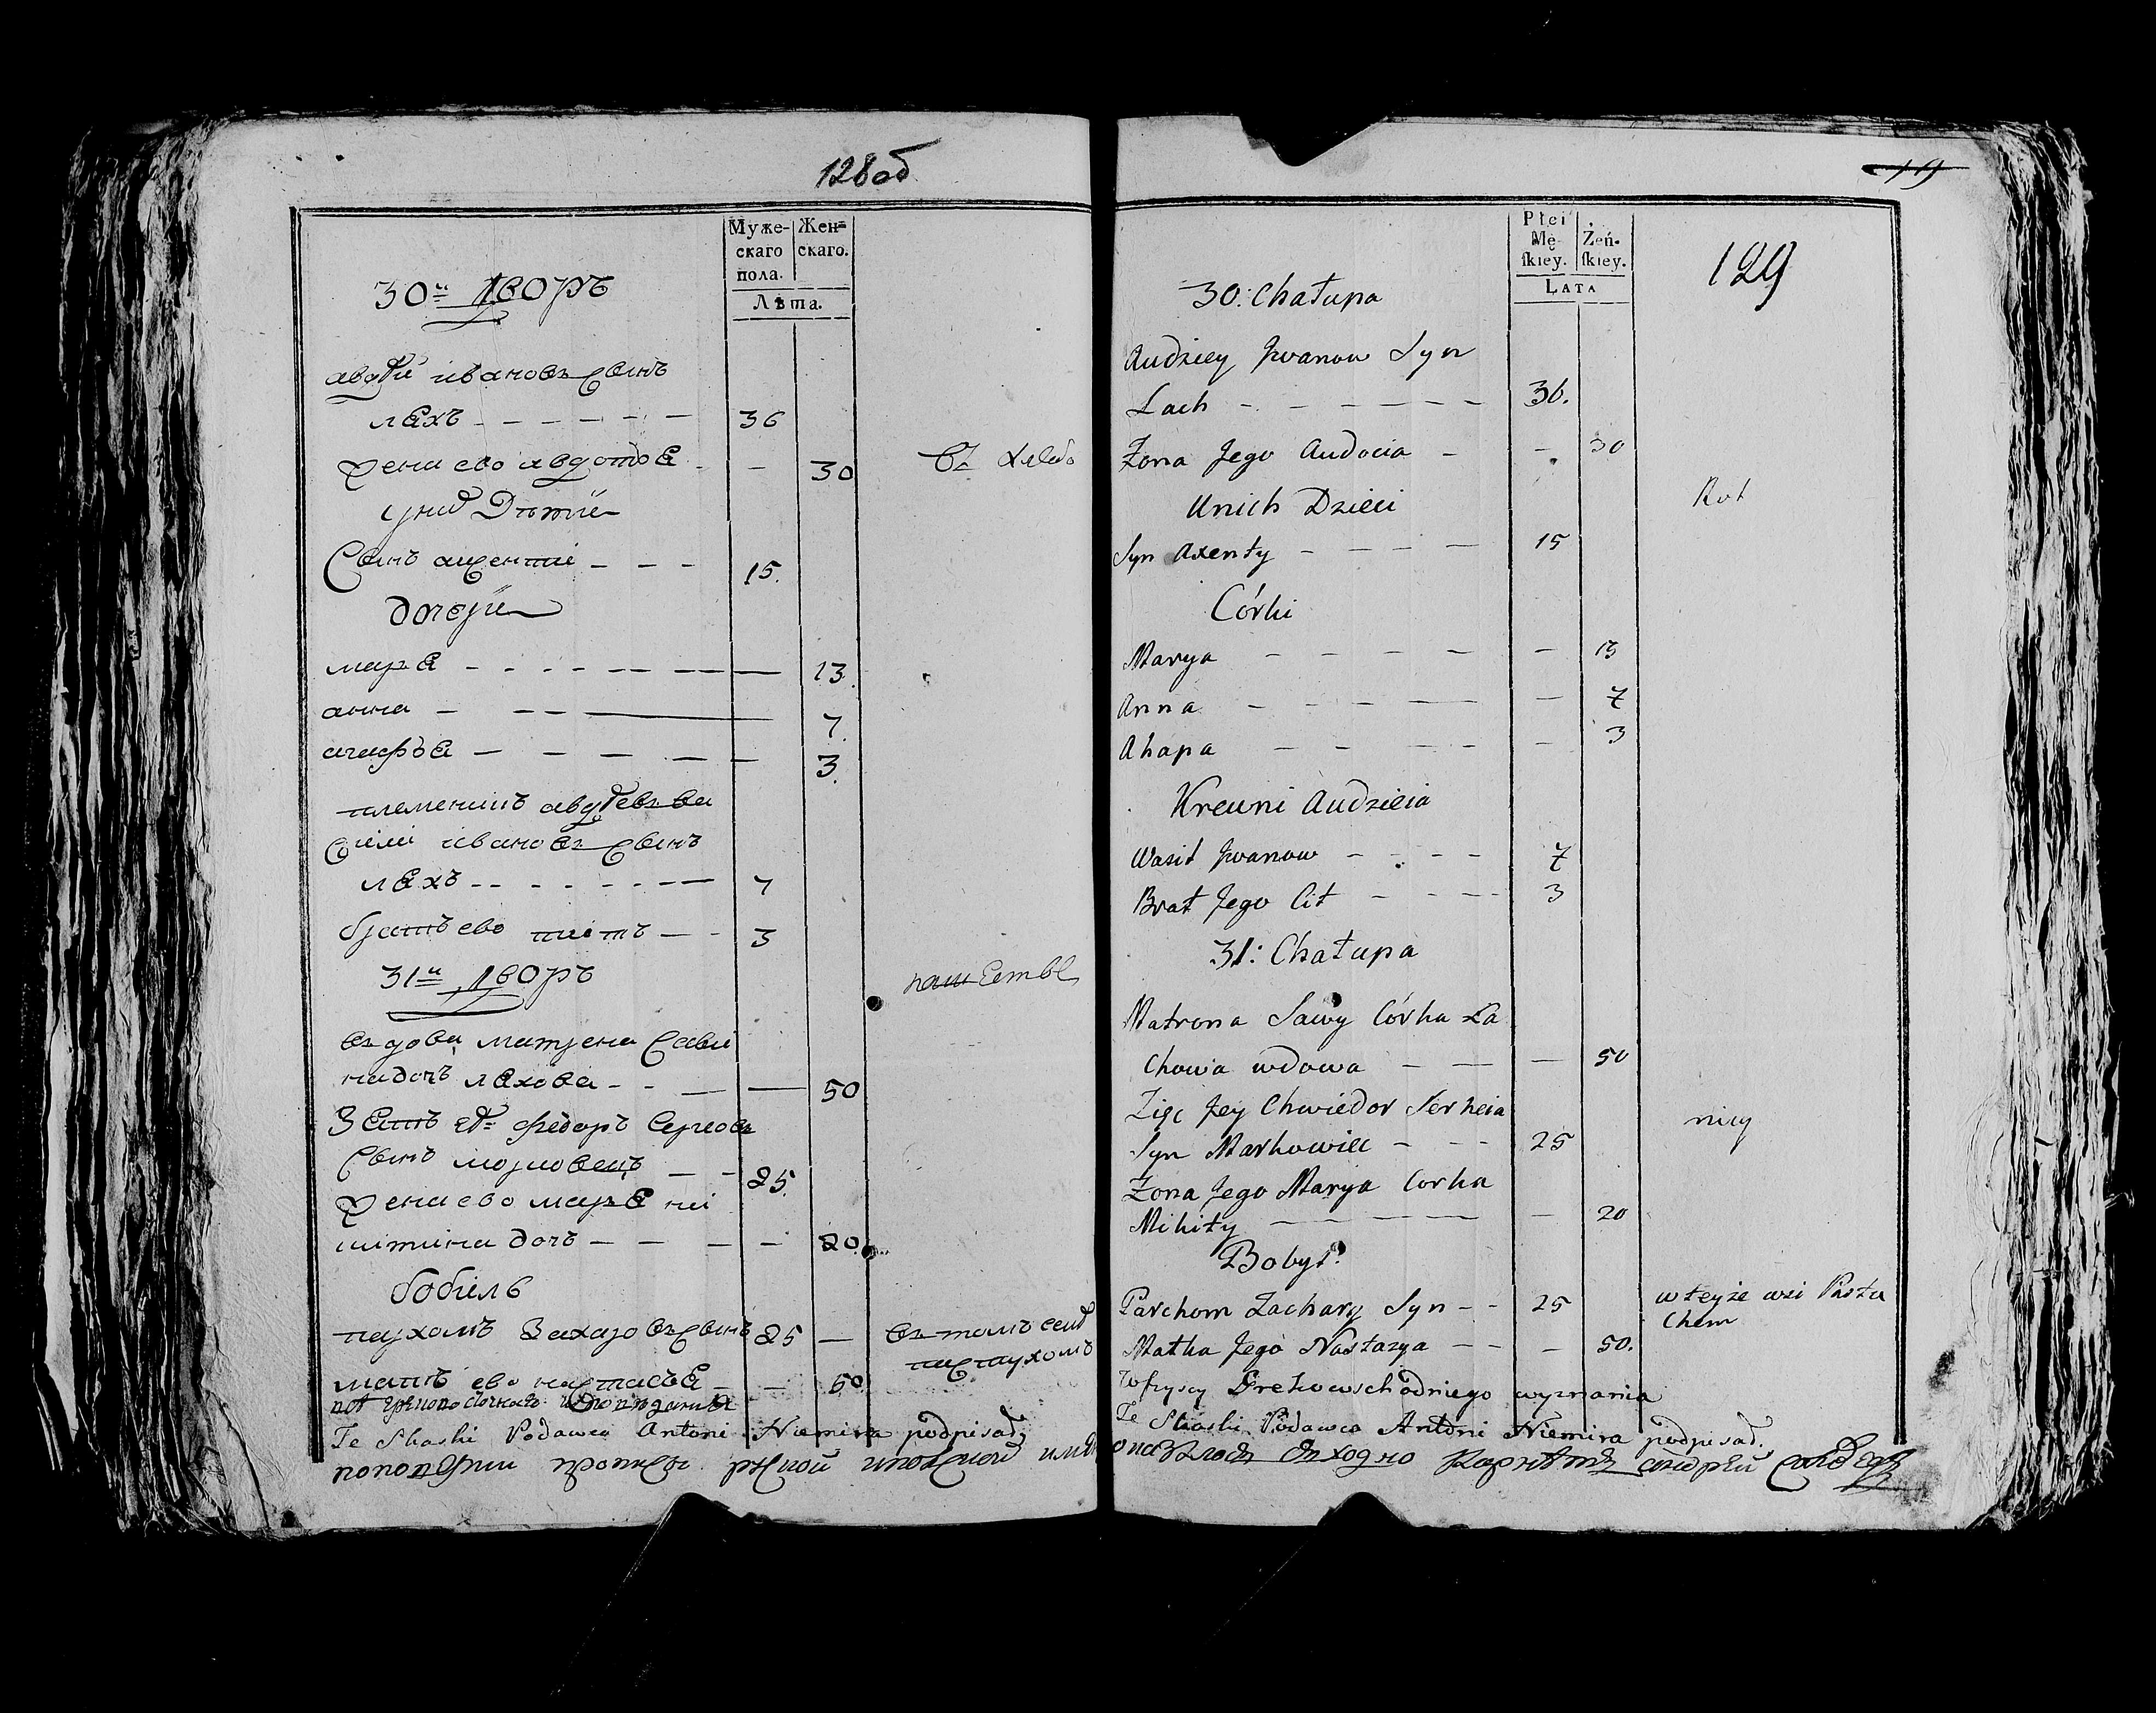 128об
Муже-
скаго
пола.
Жен=
скаго.
Лѣта.
30й дворъ
авдѣй ивановъ сынъ
ляхъ - - - - - - 36
жена ево авдотья - - 30
у нихъ дѣти
сынъ аѯентиі - - - 15.
дочери
маря - - - - - - - 13.
анна - - - - 7.
агафья - - - - - 3.
племенникъ авдѣевъ ва
силиі ивановъ сынъ
ляхъ - - - - - - - 7
братъ ево титъ - - 3
31й дворъ
въдова матрена сави
на дочь ляхова - - - - 50
зять еѣ федоръ сергеовъ
сынъ морковецъ - - 25.
жена ево маря ни
китина дочь - - - - 20.
бобыль
пархомъ захаровъ сынъ 25 -
мать ево настасья - - 50
въ томъ селѣ
пастухомъ
Te Skaski Podawca Antoni Niemira podpisał.
19
129
Płci
Mę-
ſkiey.
Żeń-
ſkiey.
LATA
30: Chałupa
Audziey Jwanow Syn
Lach - - - - - - 36.
Żona Jego Audocia - - 30
Unich Dzieci
Syn Axenty - - - - 15
Córki
Marya - - - - - 13
Anna - - - - - 7
Ahapa - - - - - 3
Krewni Audzieia
Wasil Jwanow - - - - 7
Brat Jego Cit - - - - 3
31: Chałupa
Matrona Sawy Córka La
chowa wdowa - - - 50
Zięć Jey Chwiedor Serheia
Syn Markowiec - - - 25
Żona Jego Marya Corka
Mikity - - - - - - 20
Bobyl
Parchom Zachary Syn - - 25
Matka Jego Nastazya - - - 50.
w teyże wsi Pastu
chem
Wszyscy Grekowschodniego wyznania
Te Skaski Podawca Antoni Niemira podpisał.